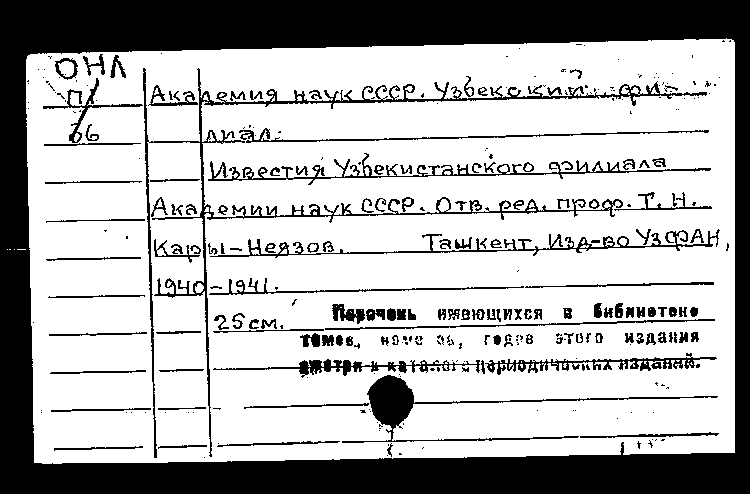 ОНЛ
П1 Академия наук СССР. Узбекский фи-
36 лиал.
Известия Узбекистанского филиала
Академии наук СССР. Отв. ред. проф. Т. Н.
Кары-Неязов. Ташкент, Изд-во УзФАН,
1940-1941.
25 см. Перечень имеющихся в библиотеке
томов, номеров, годов этого издания
смотри в каталоге периодических изданий.